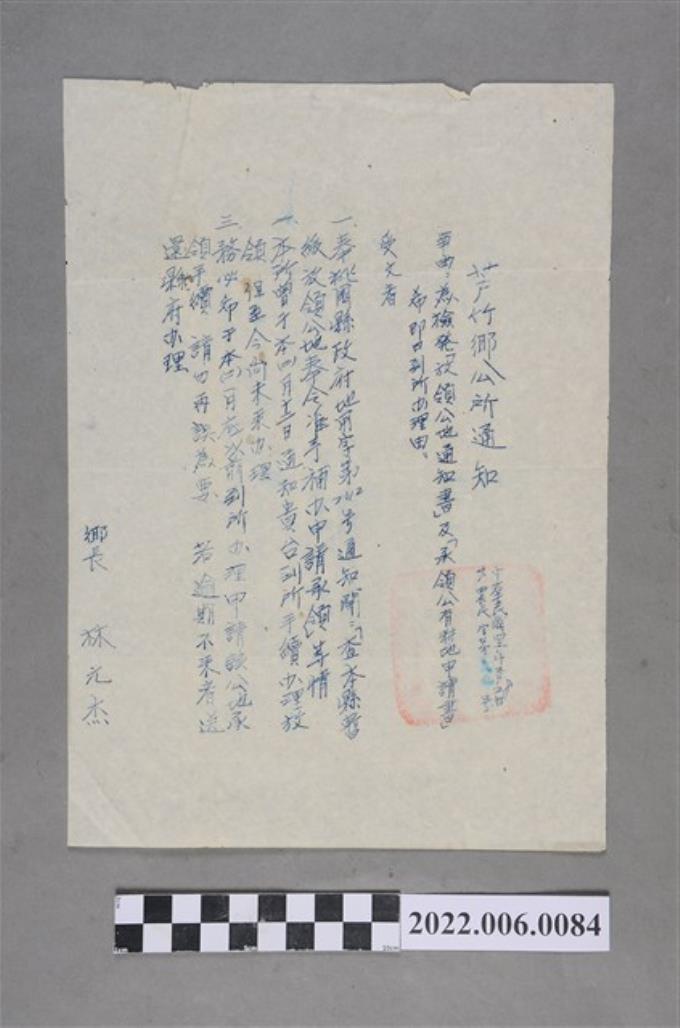 芦竹鄉公所通知
事由：為檢発「放領公地通知書」及「承領公有耕地申請書」
希即日到所办理由、
受文者
一奉桃園縣政府地前字第242号通知開：「查本縣暫
緩放領公地奉令准予補办申請承領」等情
一本所曾于本(四)月十二日通知貴台到所手續办理放
領 但至今尚未来办理
三務必希于本(四)月底以前到所办理申請該公地承
領手續 請勿再誤為要 若逾期不来者送
還縣府办理
鄉長 林元杰
2022.006.0084